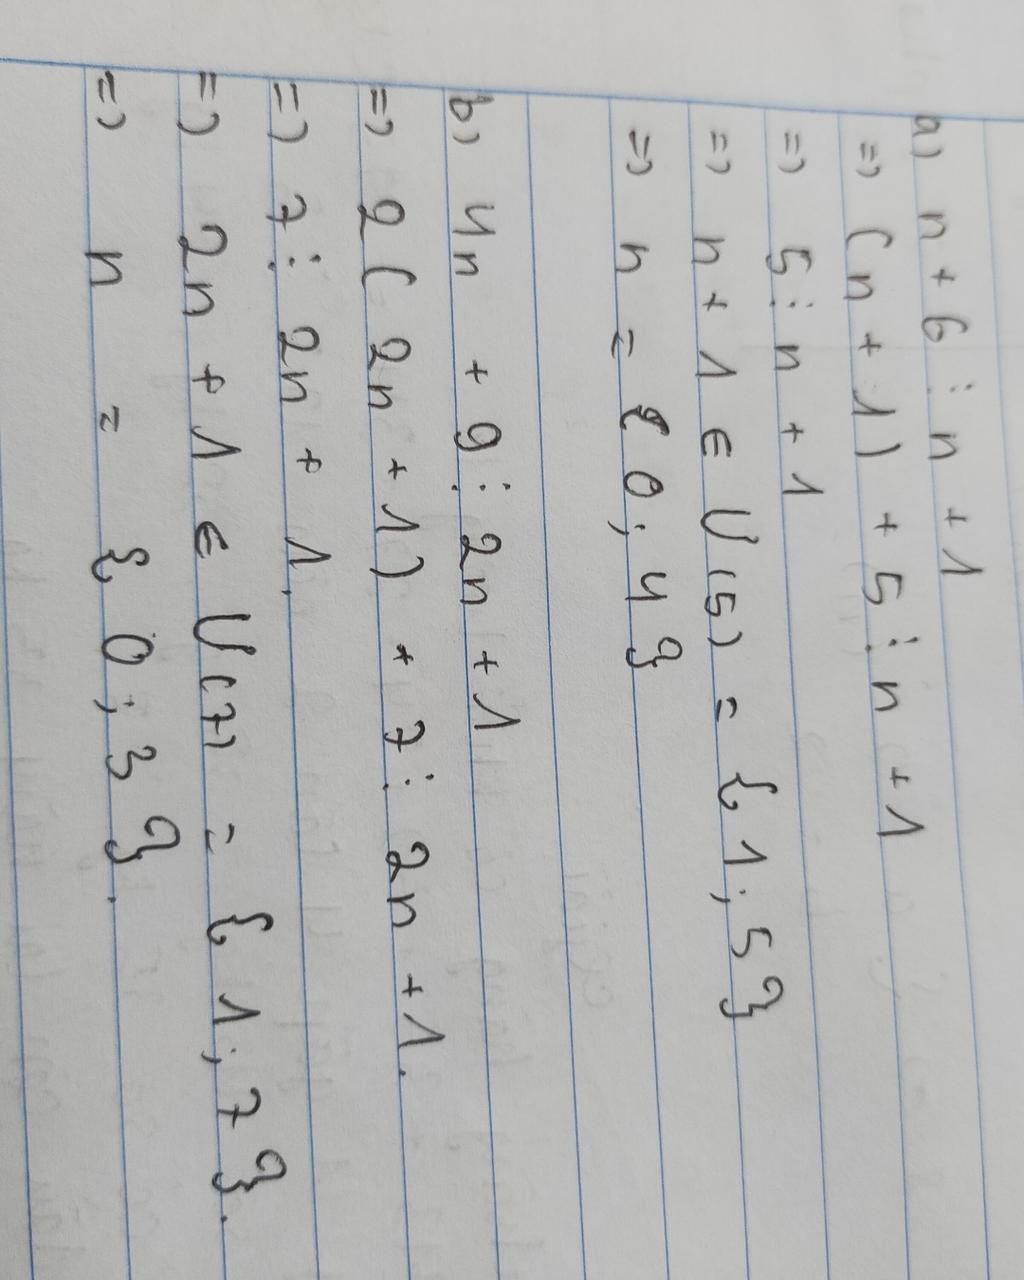 a) n + 6 ⋮ n + 1
=> (n + 1) + 5 ⋮ n + 1
=> 5 ⋮ n + 1
=> n + 1 ∈ U(5) = {1; 5}
=> n = {0; 4}
b) 4n + 9 ⋮ 2n + 1
=> 2(2n + 1) + 7 ⋮ 2n + 1.
=> 7 ⋮ 2n + 1.
=> 2n + 1 ∈ U(7) = {1; 7}.
=> n = {0; 3}.